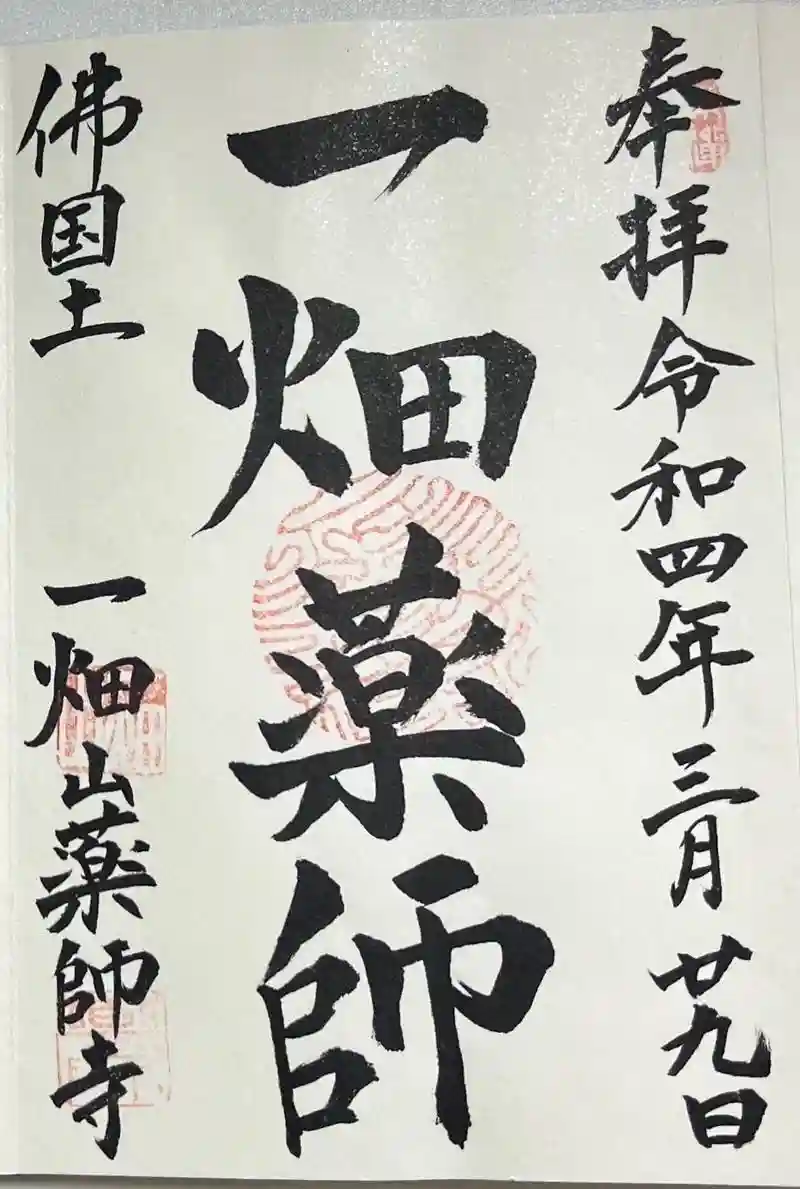 奉拝令和四年三月廿九日
一畑薬師
佛国土 一畑山薬師寺